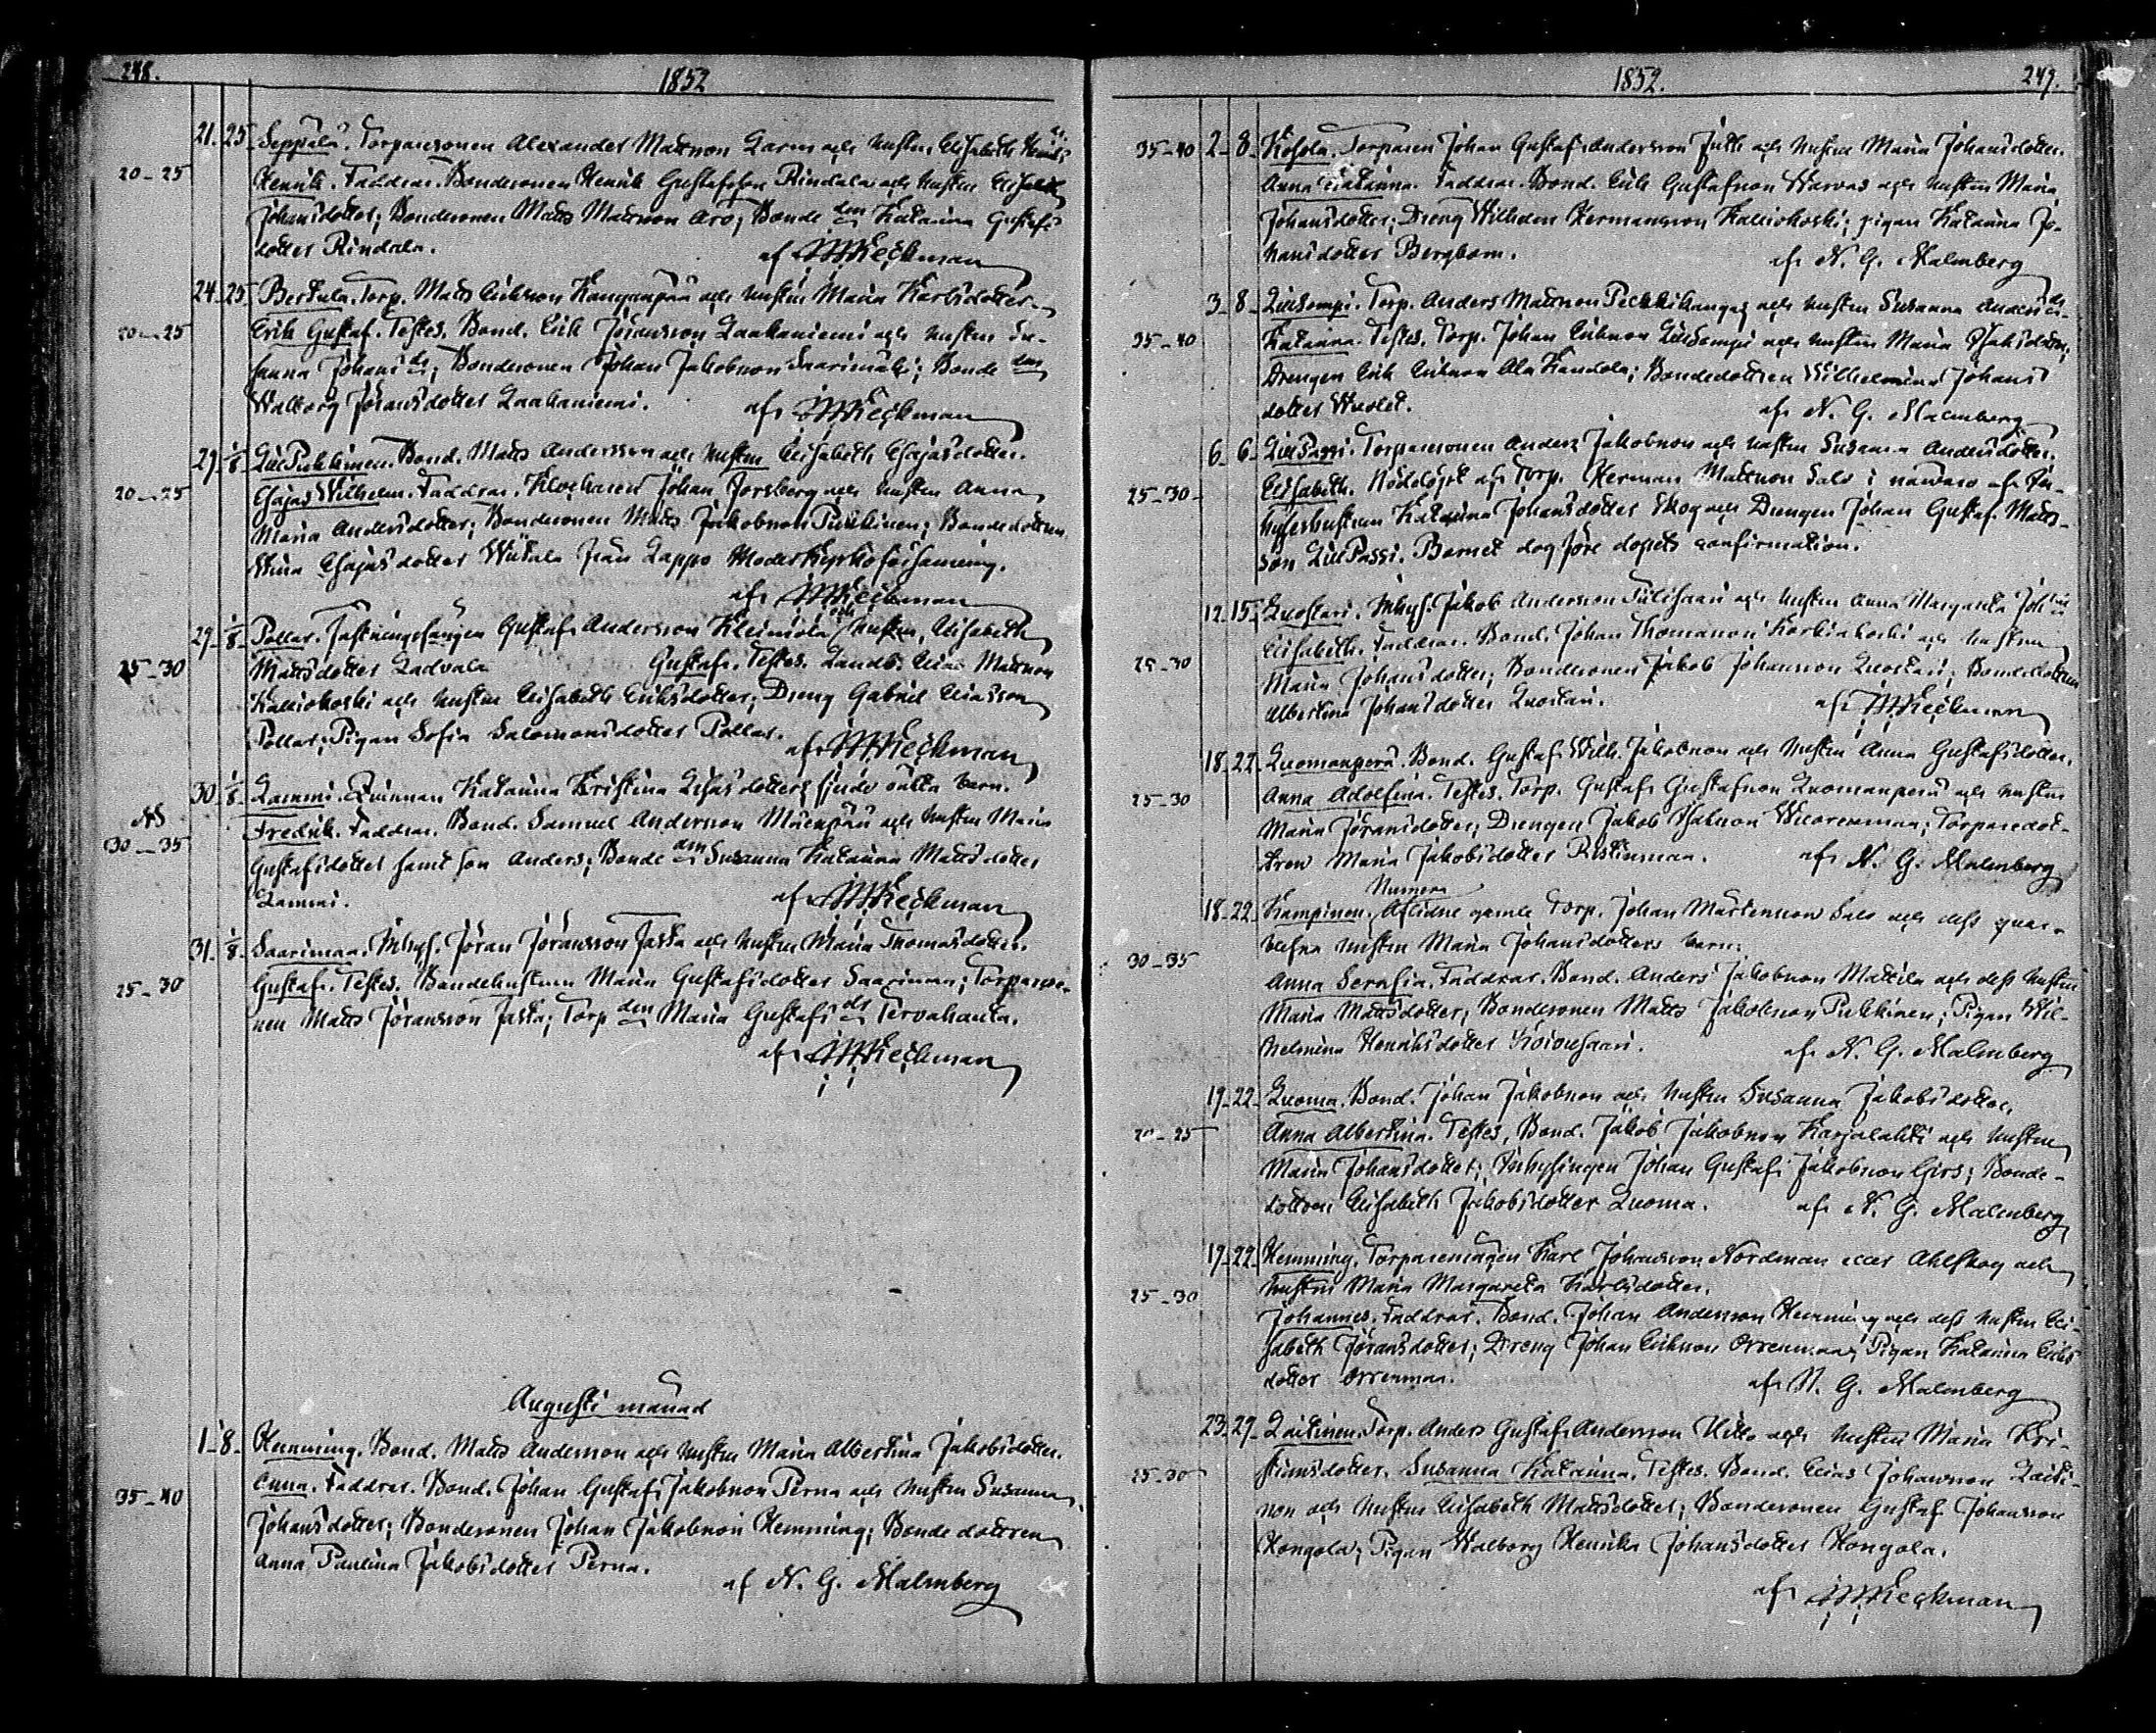 248.
1852
21. 25 Seppälä. Torparesonen Alexander Mattsson Larm och hustru Elisabeth Henriks dr.
20-25 Henrik. Faddrar. Bondesonen Henrik Gustafsson Rindala och hustru Elisabeth
Johansdotter; Bondesonen Matts Mattsson Aro; Bonde den Katarina Gustafs
dotter Rindala. af Heikman
24. 25 Bertula. Torp. Matts Eriksson Kangaspää och hustru Maria Karlsdotter.
20-25 Erik Gustaf. Testes. Bond. Erik Jöransson Laakaniemi och hustru Su-
sanna Johans dr; Bondesonen Johan Jakobsson Saarimäki; Bonde den
Walborg Jöransdotter Laakaniemi. af Heikman
29. 1/8 Lill Puhkinen. Bond. Matts Andersson och hustru Elisabeth Esajasdotter.
20-25 Esajas Wilhelm. Faddrar. Klockaren Johan Forsberg och hustru Anna
Maria Andersdotter; Bondesonen Matts Jakobsson Puhkinen; Bondedottren
Wina Esajasdotter Wiitala från Lappo Moderkyrkoförsamling.
af Heikman
29. 1/8 Pollar. Fästningsfången Gustaf Andersson och hustru, Elisabeth
25-30 Mattsdotter Ladvala Gustaf. Testes. Landb. Elias Mattsson
Kalliokoski och hustru Elisabeth Eriksdotter; Dreng Gabriel Eliasson
Pollar; Pigan Sofia Salomonsdotter Pollar. af Heikman
30 1/8 Lammi. Quinnan Katarina Kristina Lisasdotters fjerde oäkta barn.
30-35 Fredrik. Faddrar. Bond. Samuel Andersson Mäenpää och hustru Maria
Gustafsdotter samt son Anders; Bonde den Susanna Katarina Mattsdotter
Lammi. af Heikman
31. 1/8 Saarimaa. Inhys. Jöran Jöransson Jaska och hustru Maria Thomasdotter.
25-30 Gustaf. Testes. Bondehustrun Maria Gustafsdotter Saarimaa; Torpareso-
nen Matts Jöransson Jaska; Torp den Maria Gustafs dr Tervahauta.
af Heikman
Augusti månad
1-8 Hemming. Bond. Matts Andersson och hustru Maria Albertina Jakobsdotter.
35-40 Anna. Faddrar. Bond. Johan Gustaf Jakobsson Perna och hustru Susanna
Johansdotter; Bondesonen Johan Jakobsson Hemming; Bondedottren
Anna Paulina Jakobsdotter Perna. af N. G. Malmberg
1852.
249.
35-40 2-8 Kosola. Torparen Johan Gustaf Andersson och hustru Maria Johansdotter.
Anna Katarina. Faddrar. Bond. Erik Gustafsson Warvas och hustru Maria
Johansdotter; Dreng Wilhelm Hermansson Kalliokoski; pigan Katarina Jo-
hansdotter Bergbom. af N. G. Malmberg
3-8 Torp. Anders Mattsson Pickkikangas och hustru Susanna Anders dr.
35-40 Katarina. Testes. Torp. Johan Eriksson och hustru Maria Isaksdotter;
Drengen Erik Eriksson Ala Kandola; Bondedottren Wilhelmina Johans
dotter Wuolet. af N. G. Malmberg
6-6 Lill Passi. Torparesonen Anders Jakobsson och hustru Susanna Andersdotter.
25-30 Elisabeth. Nöddöpt af Torp. Herman Mattsson Salo i närvaro af In-
hyseshustrun Katarina Johansdotter Skog och Drengen Johan Gustaf Matts-
son Lill Passi. Barnet dog före dopets confirmation.
12. 15 Luostari. Inhys. Jakob Andersson Tulisaari och hustru Anna Margareta Joh dr
25-30 Elisabeth. Faddrar. Bond. Johan Thomasson Korkiakoski och hustru
Maria Johansdotter; Bondesonen Jakob Johansson Luostari; Bondedottren
Albertina Johansdotter Luostari. af Heikman
18. 22 Luomanperä. Bond. Gustaf Wilh. Jakobsson och hustru Anna Gustafsdotter.
25-30 Anna Adolfina. Testes. Torp. Gustaf Gustafsson Luomanperä och hustru
Maria Jöransdotter; Drengen Jakob Isaksson Wuorenmaa; Torparedot-
tren Maria Jakobsdotter Ristimaa. af N. G. Malmberg
Numera
18-22 Kampinen. Aflidne gamle Torp. Johan Mårtensson Salo och dess qvar-
lefva hustru Maria Johansdotters barn:
30-35 Anna Serafia. Faddrar. Bond. Anders Jakobsson Mattila och dess hustru
Maria Mattsdotter; Bondesonen Matts Jakobsson Puhkinen; Pigan Wil-
helmina Henriksdotter Koivusaari. af N. G. Malmberg
19-22 Luoma. Bond. Johan Jakobsson och hustru Susanna Jakobsdotter.
20-25 Anna Albertina. Testes, Bond. Jakob Jakobsson Karjalahti och hustru
Maria Johansdotter; Inhysingen Johan Gustaf Jakobsson Girs; Bonde-
dottren Elisabeth Jakobsdotter Luoma. af N. G. Malmberg
19-22 Hemming. Torparemågen Karl Johansson Nordman eller Ahlskog och
25-30 hustru Maria Margareta Karlsdotter.
Johannes. Faddrar. Bond. Johan Andersson Hemming och dess hustru Eli-
sabeth Jöransdotter; Dreng Johan Eriksson Orrenmaa; Pigan Katarina Eriks
dotter Orrenmaa. af N. G. Malmberg
23. 29 Laitinen. Torp. Anders Gustaf Andersson och hustru Maria Kri-
25-30 stiansdotter. Susanna Katarina. Testes. Bond. Elias Johansson Laiti-
nen och hustru Elisabeth Mattsdotter; Bondesonen Gustaf Johansson
Hongola; Pigan Walborg Henrika Johansdotter Hongola.
af Heikman